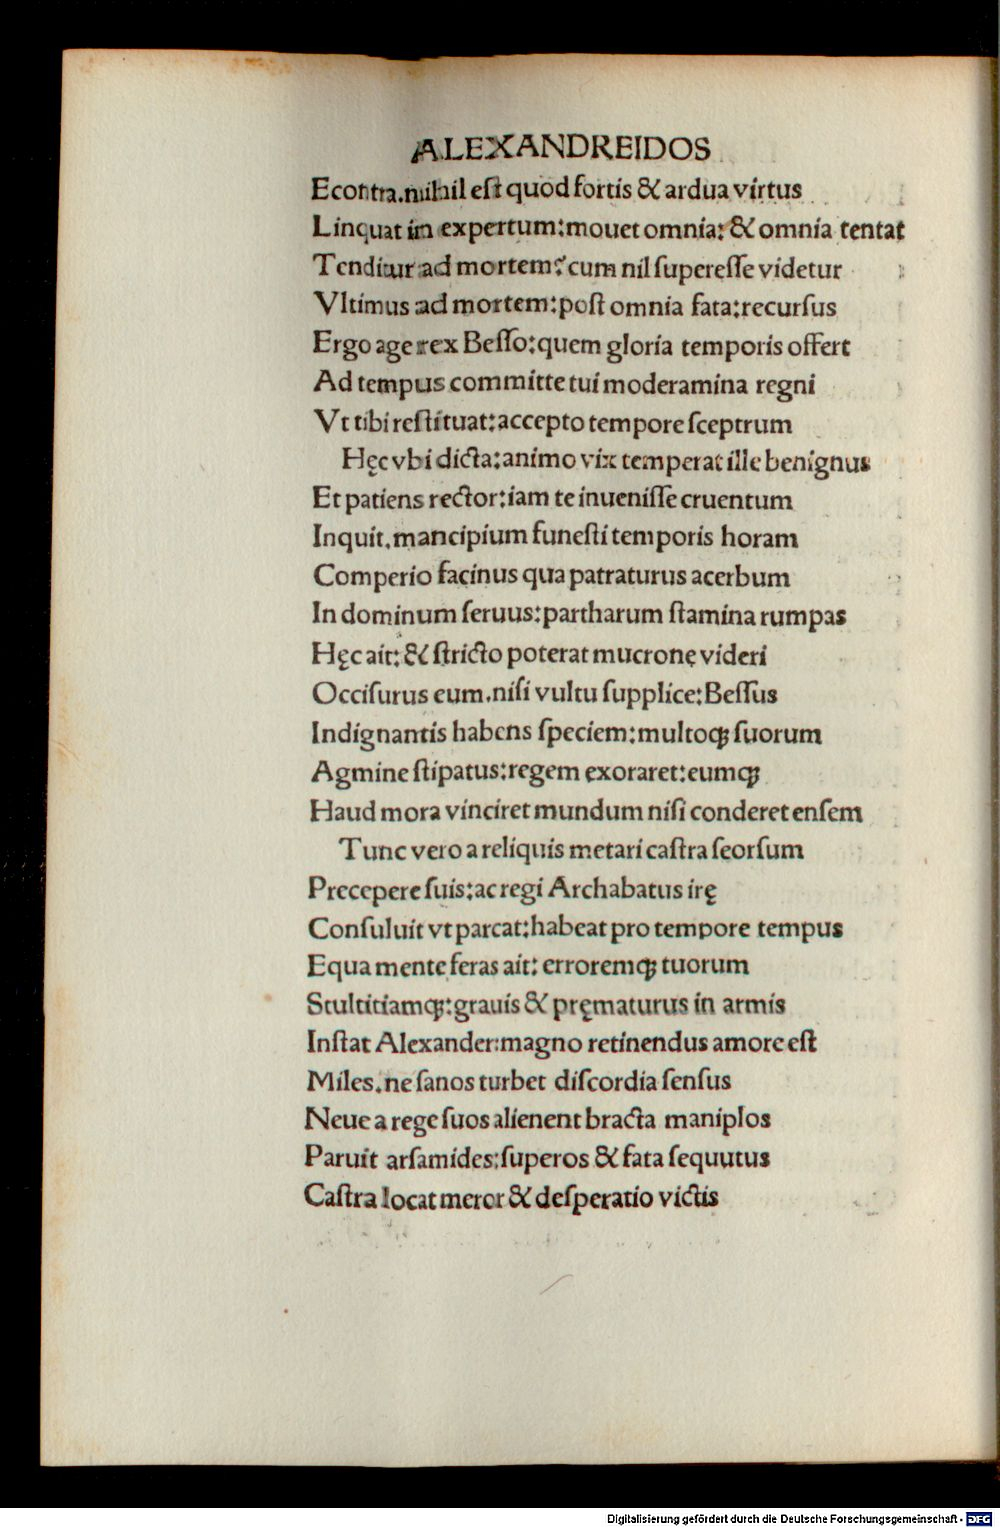 ALEXANDREIDOS
Econtra.nihil eſt quod fortis & ardua virtus
Linquat in expertum:mouet omnia:& omnia tentat
Tenditur ad mortem?cum nil ſupereſſe videtur
Vltimus ad mortem:poſt omnia fata:recurſus
Ergo age rex Beſſo:quem gloria temporis offert
Ad tempus committe tui moderamina regni
Vt tibi reſtituat:accepto tempore ſceptrum
Hęc vbi dicta:animo vix temperat ille benignus
Et patiens rector:iam te inueniſſe cruentum
Inquit.mancipium funeſti temporis horam
Comperio facinus qua patraturus acerbum
In dominum ſeruus:partharum ſtamina rumpas
Hęc ait:& ſtricto poterat mucronę videri
Occiſurus eum.niſi vultu ſupplice:Beſſus
Indignantis habens ſpeciem:multoqꝫ ſuorum
Agmine ſtipatus:regem exoraret:eumqꝫ
Haud mora vinciret mundum niſi conderet enſem
Tunc vero a reliquis metari caſtra ſeorſum
Precepere ſuis:ac regi Archabatus irę
Conſuluit vt parcat:habeat pro tempore tempus
Equa mente feras ait: erroremqꝫ tuorum
Stultitiamqꝫ:grauis & pręmaturus in armis
Inſtat Alexander:magno retinendus amore eſt
Miles.ne ſanos turbet diſcordia ſenſus
Neue a rege ſuos alienent bracta maniplos
Paruit arſamides:ſuperos & fata ſequutus
Caſtra locat meror & deſperatio victis
Digitalisierung gefördert durch die Deutsche Forschungsgemeinschaft - DFG